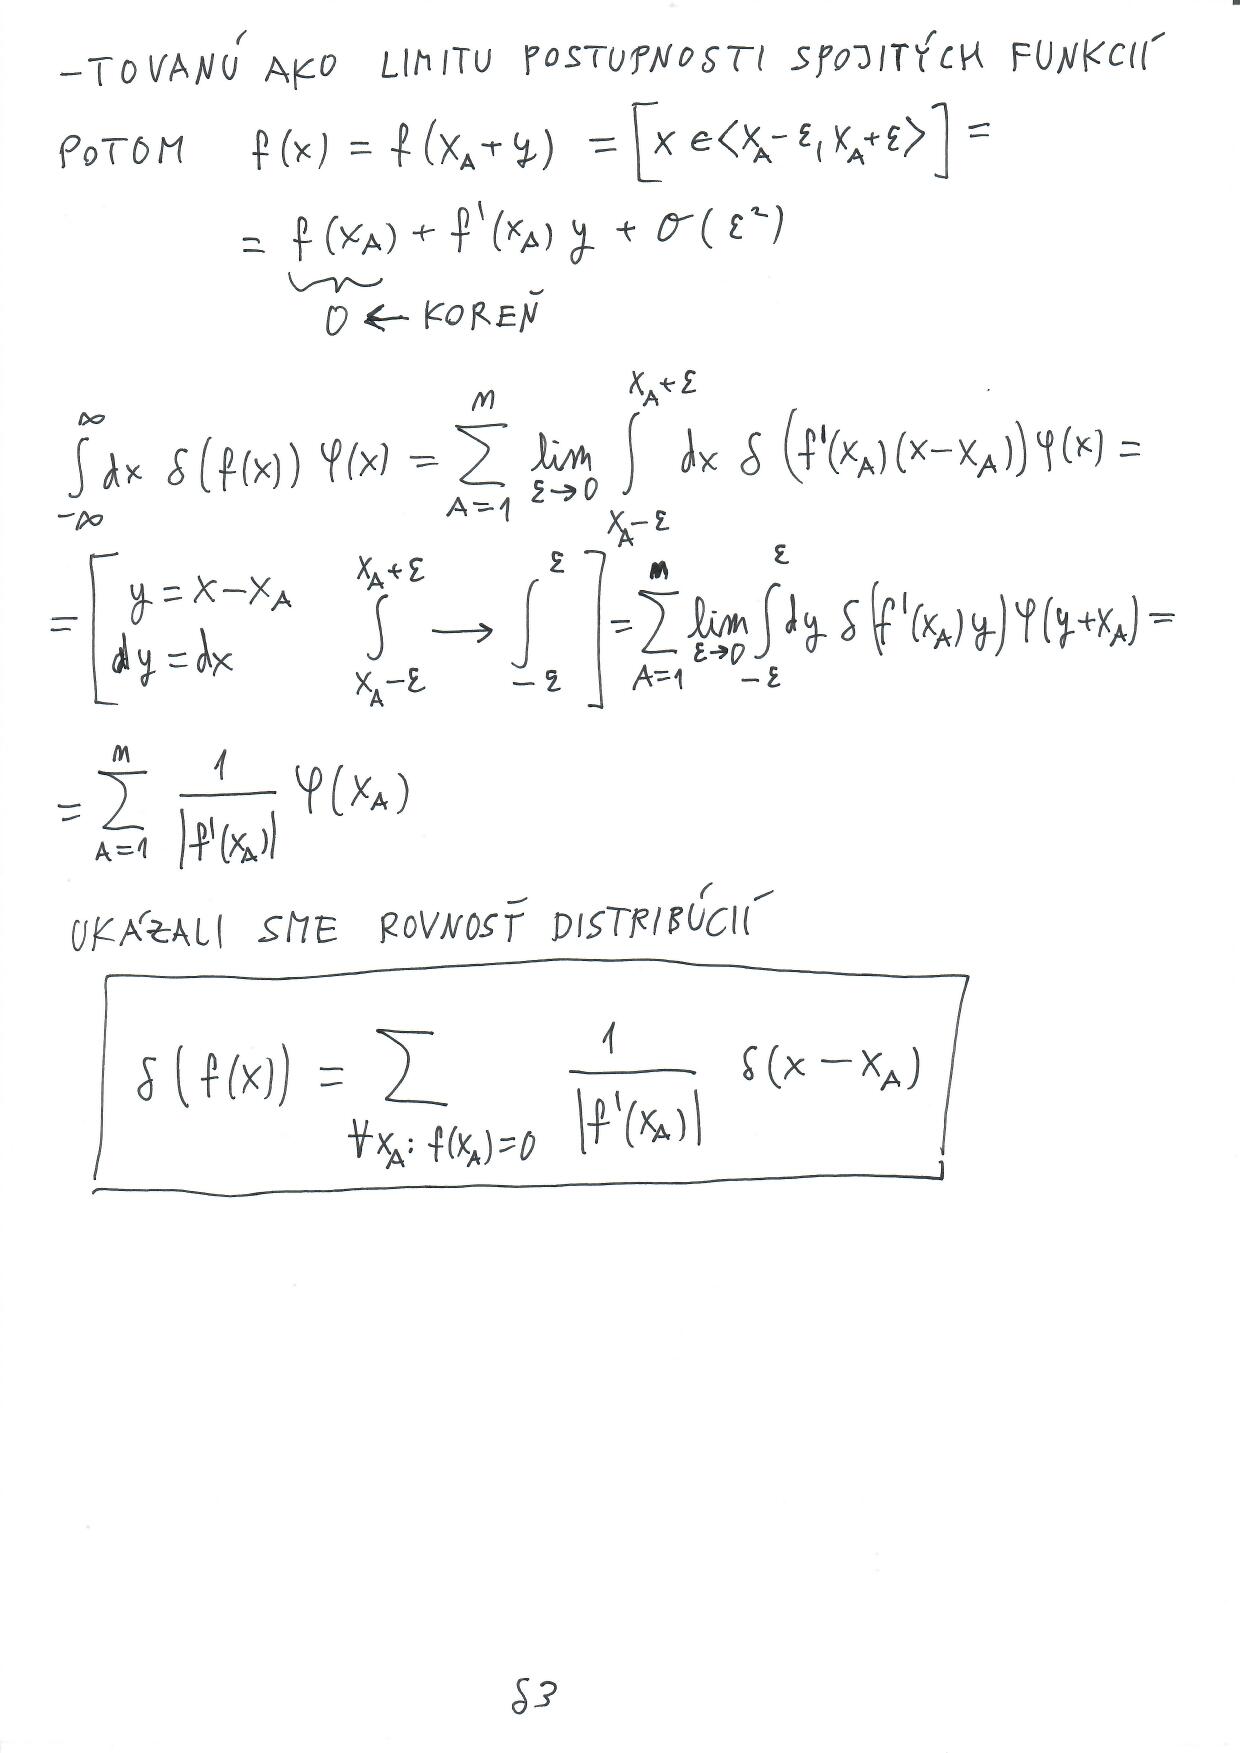 -TOVANÚ AKO LIMITU POSTUPNOSTI SPOJITÝCH FUNKCIÍ
POTOM f(x) = f(x_A + y) = [x ∈ <x_A - ε, x_A + ε>] =
= f(x_A) + f'(x_A) y + σ(ε²)
0 ← KOREŇ
∫_{-∞}^{∞} dx δ(f(x)) φ(x) = ∑_{A=1}^{M} lim_{ε→0} ∫_{x_A-ε}^{x_A+ε} dx δ(f'(x_A)(x-x_A)) φ(x) =
= [y = x - x_A dy = dx ∫_{x_A-ε}^{x_A+ε} → ∫_{-ε}^{ε}] = ∑_{A=1}^{M} lim_{ε→0} ∫_{-ε}^{ε} dy δ(f'(x_A) y) φ(y + x_A) =
= ∑_{A=1}^{M} 1/|f'(x_A)| φ(x_A)
UKÁZALI SME ROVNOSŤ DISTRIBÚCIÍ
δ(f(x)) = ∑_{∀x_A: f(x_A)=0} 1/|f'(x_A)| δ(x - x_A)
δ3